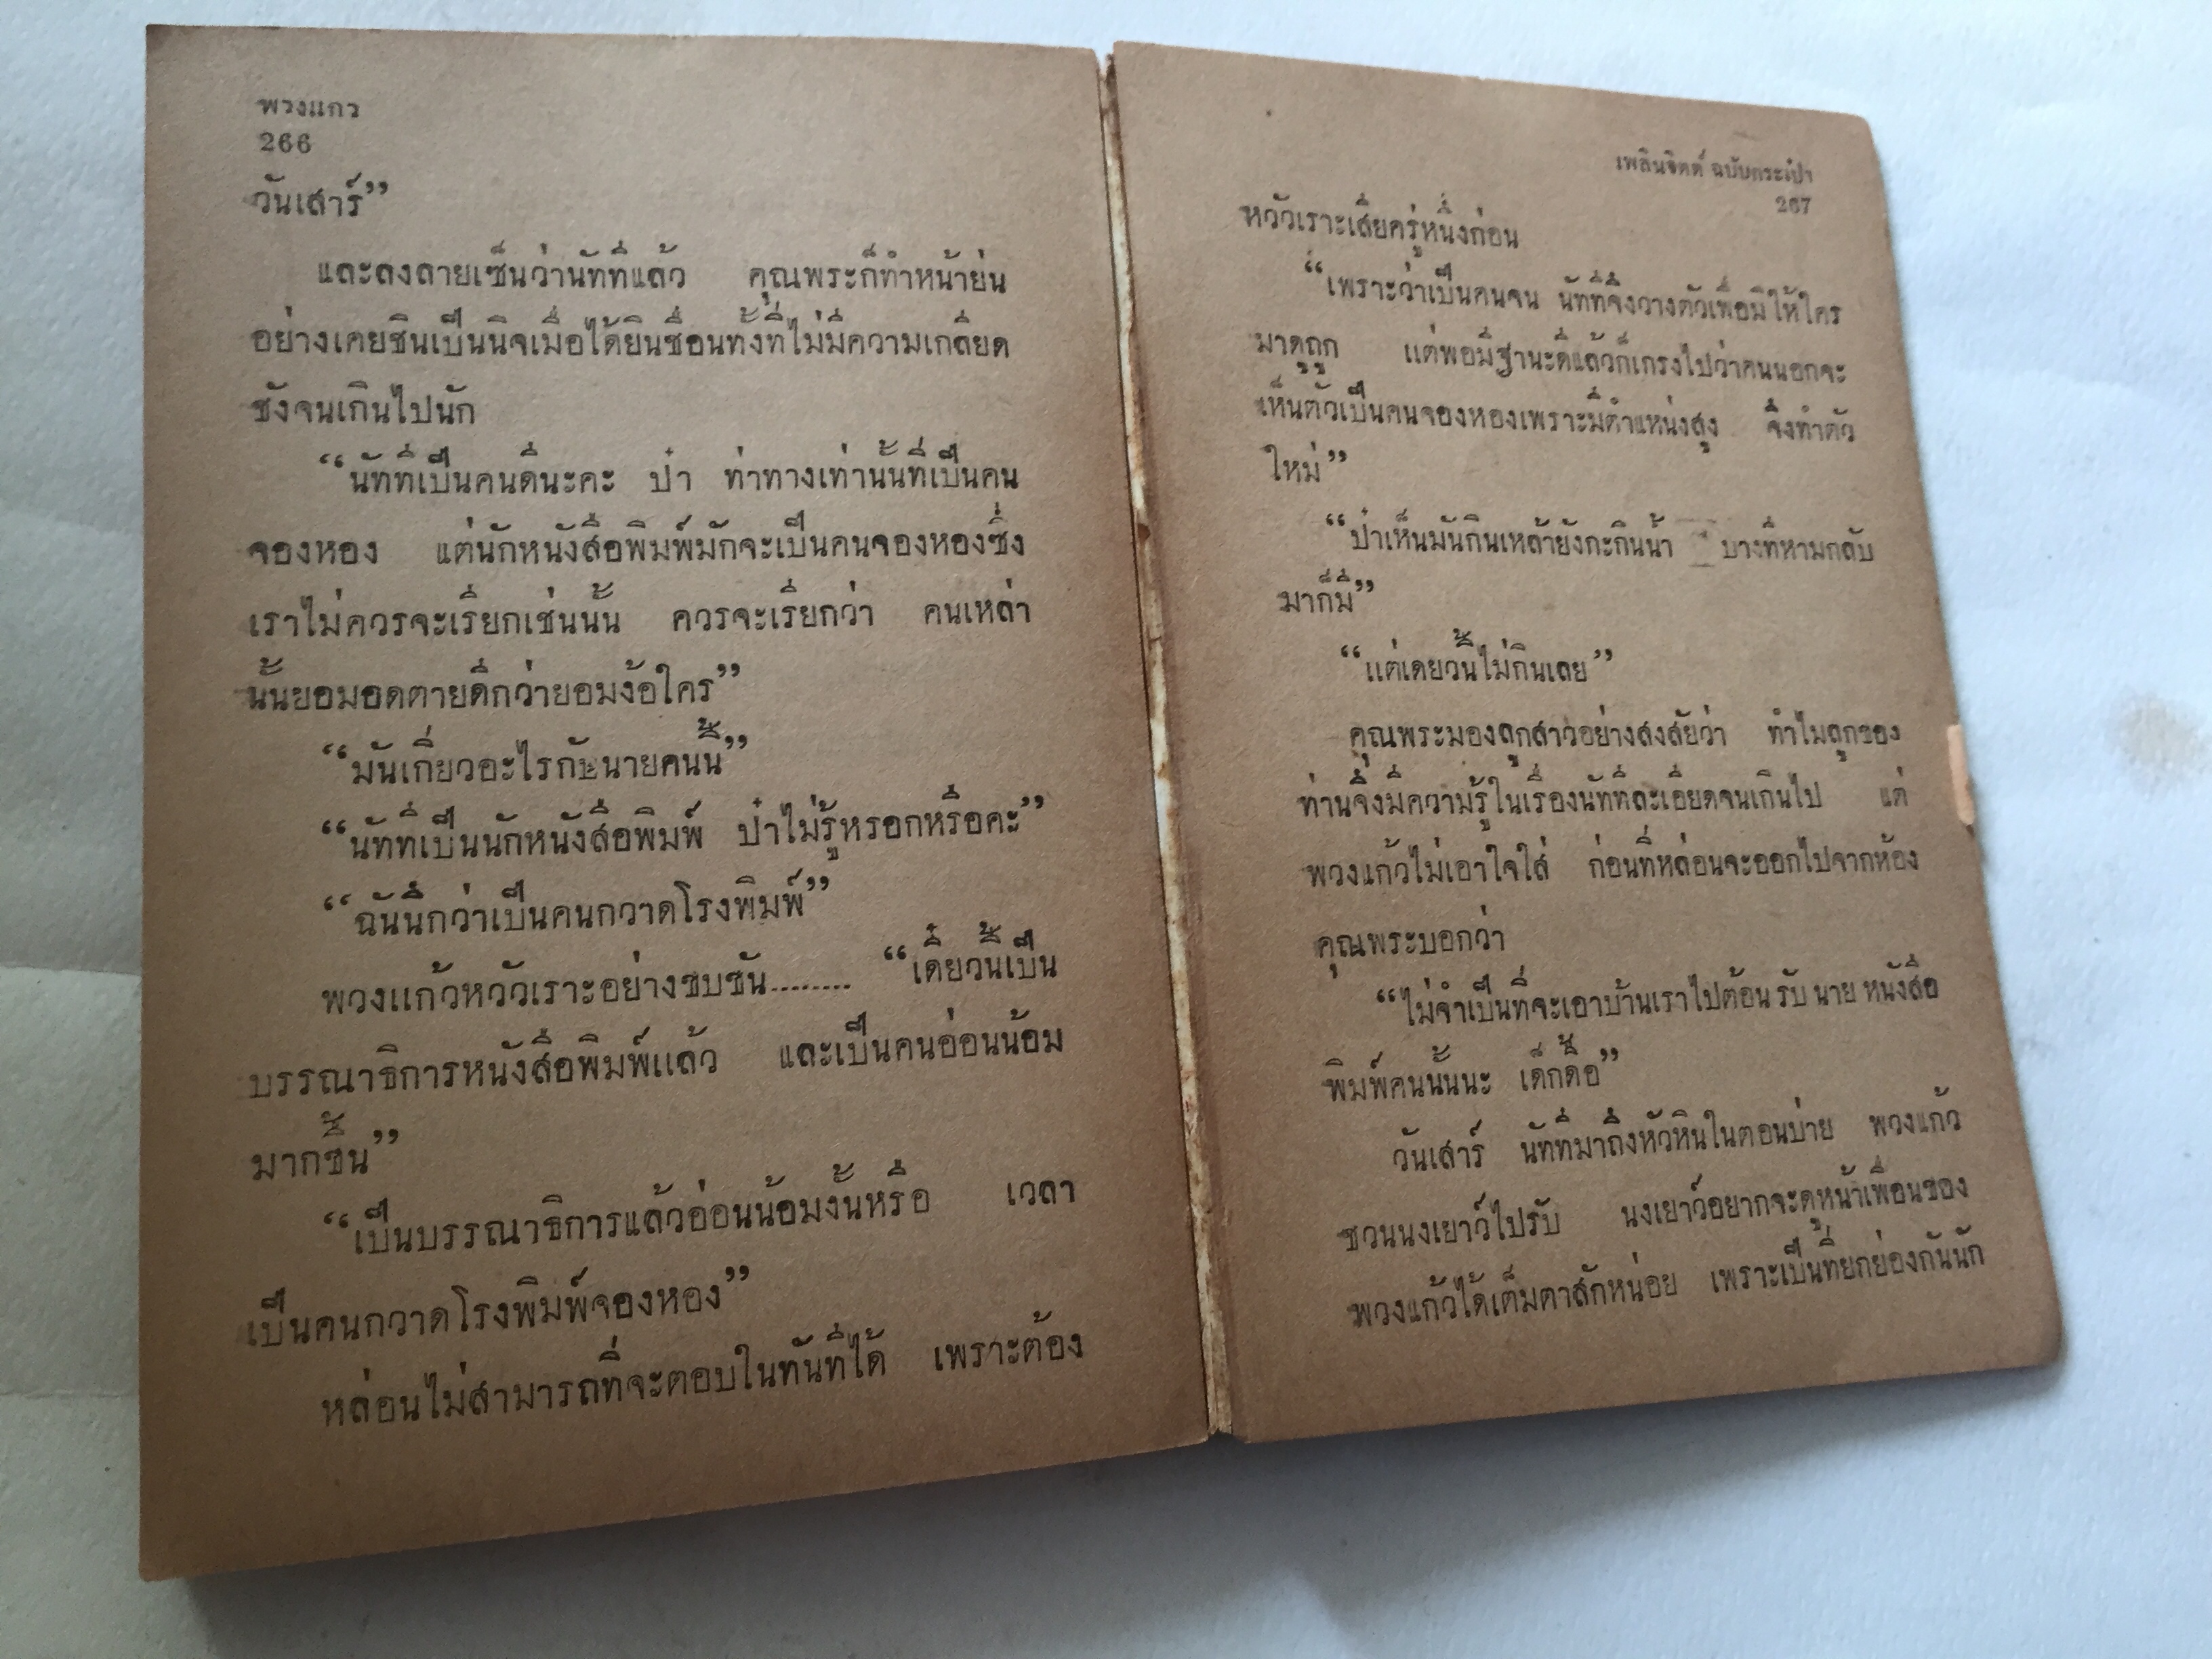 พวงแกว
266
วันเสาร์”
และลงลายเซ็นว่านัททีแล้ว คุณพระก็ทำหน้าย่น
อย่างเคยชินเป็นนิจเมื่อได้ยินชื่อนทั้งที่ไม่มีความเกลียด
ชังจนเกินไปนัก
“นัททีเป็นคนดีนะคะ ป๋า ท่าทางเท่านั้นที่เป็นคน
จองหอง แต่นักหนังสือพิมพ์มักจะเป็นคนจองหองซึ่ง
เราไม่ควรจะเรียกเช่นนั้น ควรจะเรียกว่า คนเหล่า
นั้นยอมอดตายดีกว่ายอมง้อใคร”
“มันเกี่ยวอะไรกับนายคนนี้”
“นัททีเป็นนักหนังสือพิมพ์ ป๋าไม่รู้หรอกหรือคะ”
“ฉันนึกว่าเป็นคนกวาดโรงพิมพ์”
พวงแก้วหวัวเราะอย่างขบขัน........ “เดี๋ยวนี้เป็น
บรรณาธิการหนังสือพิมพ์แล้ว และเป็นคนอ่อนน้อม
มากขึ้น”
“เป็นบรรณาธิการแล้วอ่อนน้อมงั้นหรือ เวลา
เป็นคนกวาดโรงพิมพ์จองหอง”
หล่อนไม่สามารถที่จะตอบในทันทีได้ เพราะต้อง
เพลินจิตต์ ฉบับกระเป๋า
267
หวัวเราะเสียครู่หนึ่งก่อน
“เพราะว่าเป็นคนจน นัททีจึงวางตัวเพื่อมิให้ใคร
มาดูถูก แต่พอมีฐานะดีแล้วก็เกรงไปว่าคนนอกจะ
เห็นตัวเป็นคนจองหองเพราะมีตำแหน่งสูง จึงทำตัว
ใหม่”
“ป๋าเห็นมันกินเหล้ายังกะกินน้ำ บางทีหามกลับ
มาก็มี”
“แต่เดยวนี้ไม่กินเลย”
คุณพระมองลูกสาวอย่างสงสัยว่า ทำไมลูกของ
ท่านจึงมีความรู้ในเรื่องนัททีละเอียดจนเกินไป แต่
พวงแก้วไม่เอาใจใส่ ก่อนที่หล่อนจะออกไปจากห้อง
คุณพระบอกว่า
“ไม่จำเป็นที่จะเอาบ้านเราไปต้อนรับ นาย หนังสือ
พิมพ์คนนั้นนะ เด็กดื้อ”
วันเสาร์ นัททีมาถึงหัวหินในตอนบ่าย พวงแก้ว
ชวนนงเยาว์ไปรับ นงเยาว์อยากจะดูหน้าเพื่อนของ
พวงแก้วได้เต็มตาสักหน่อย เพราะเป็นที่ยกย่องกันนัก